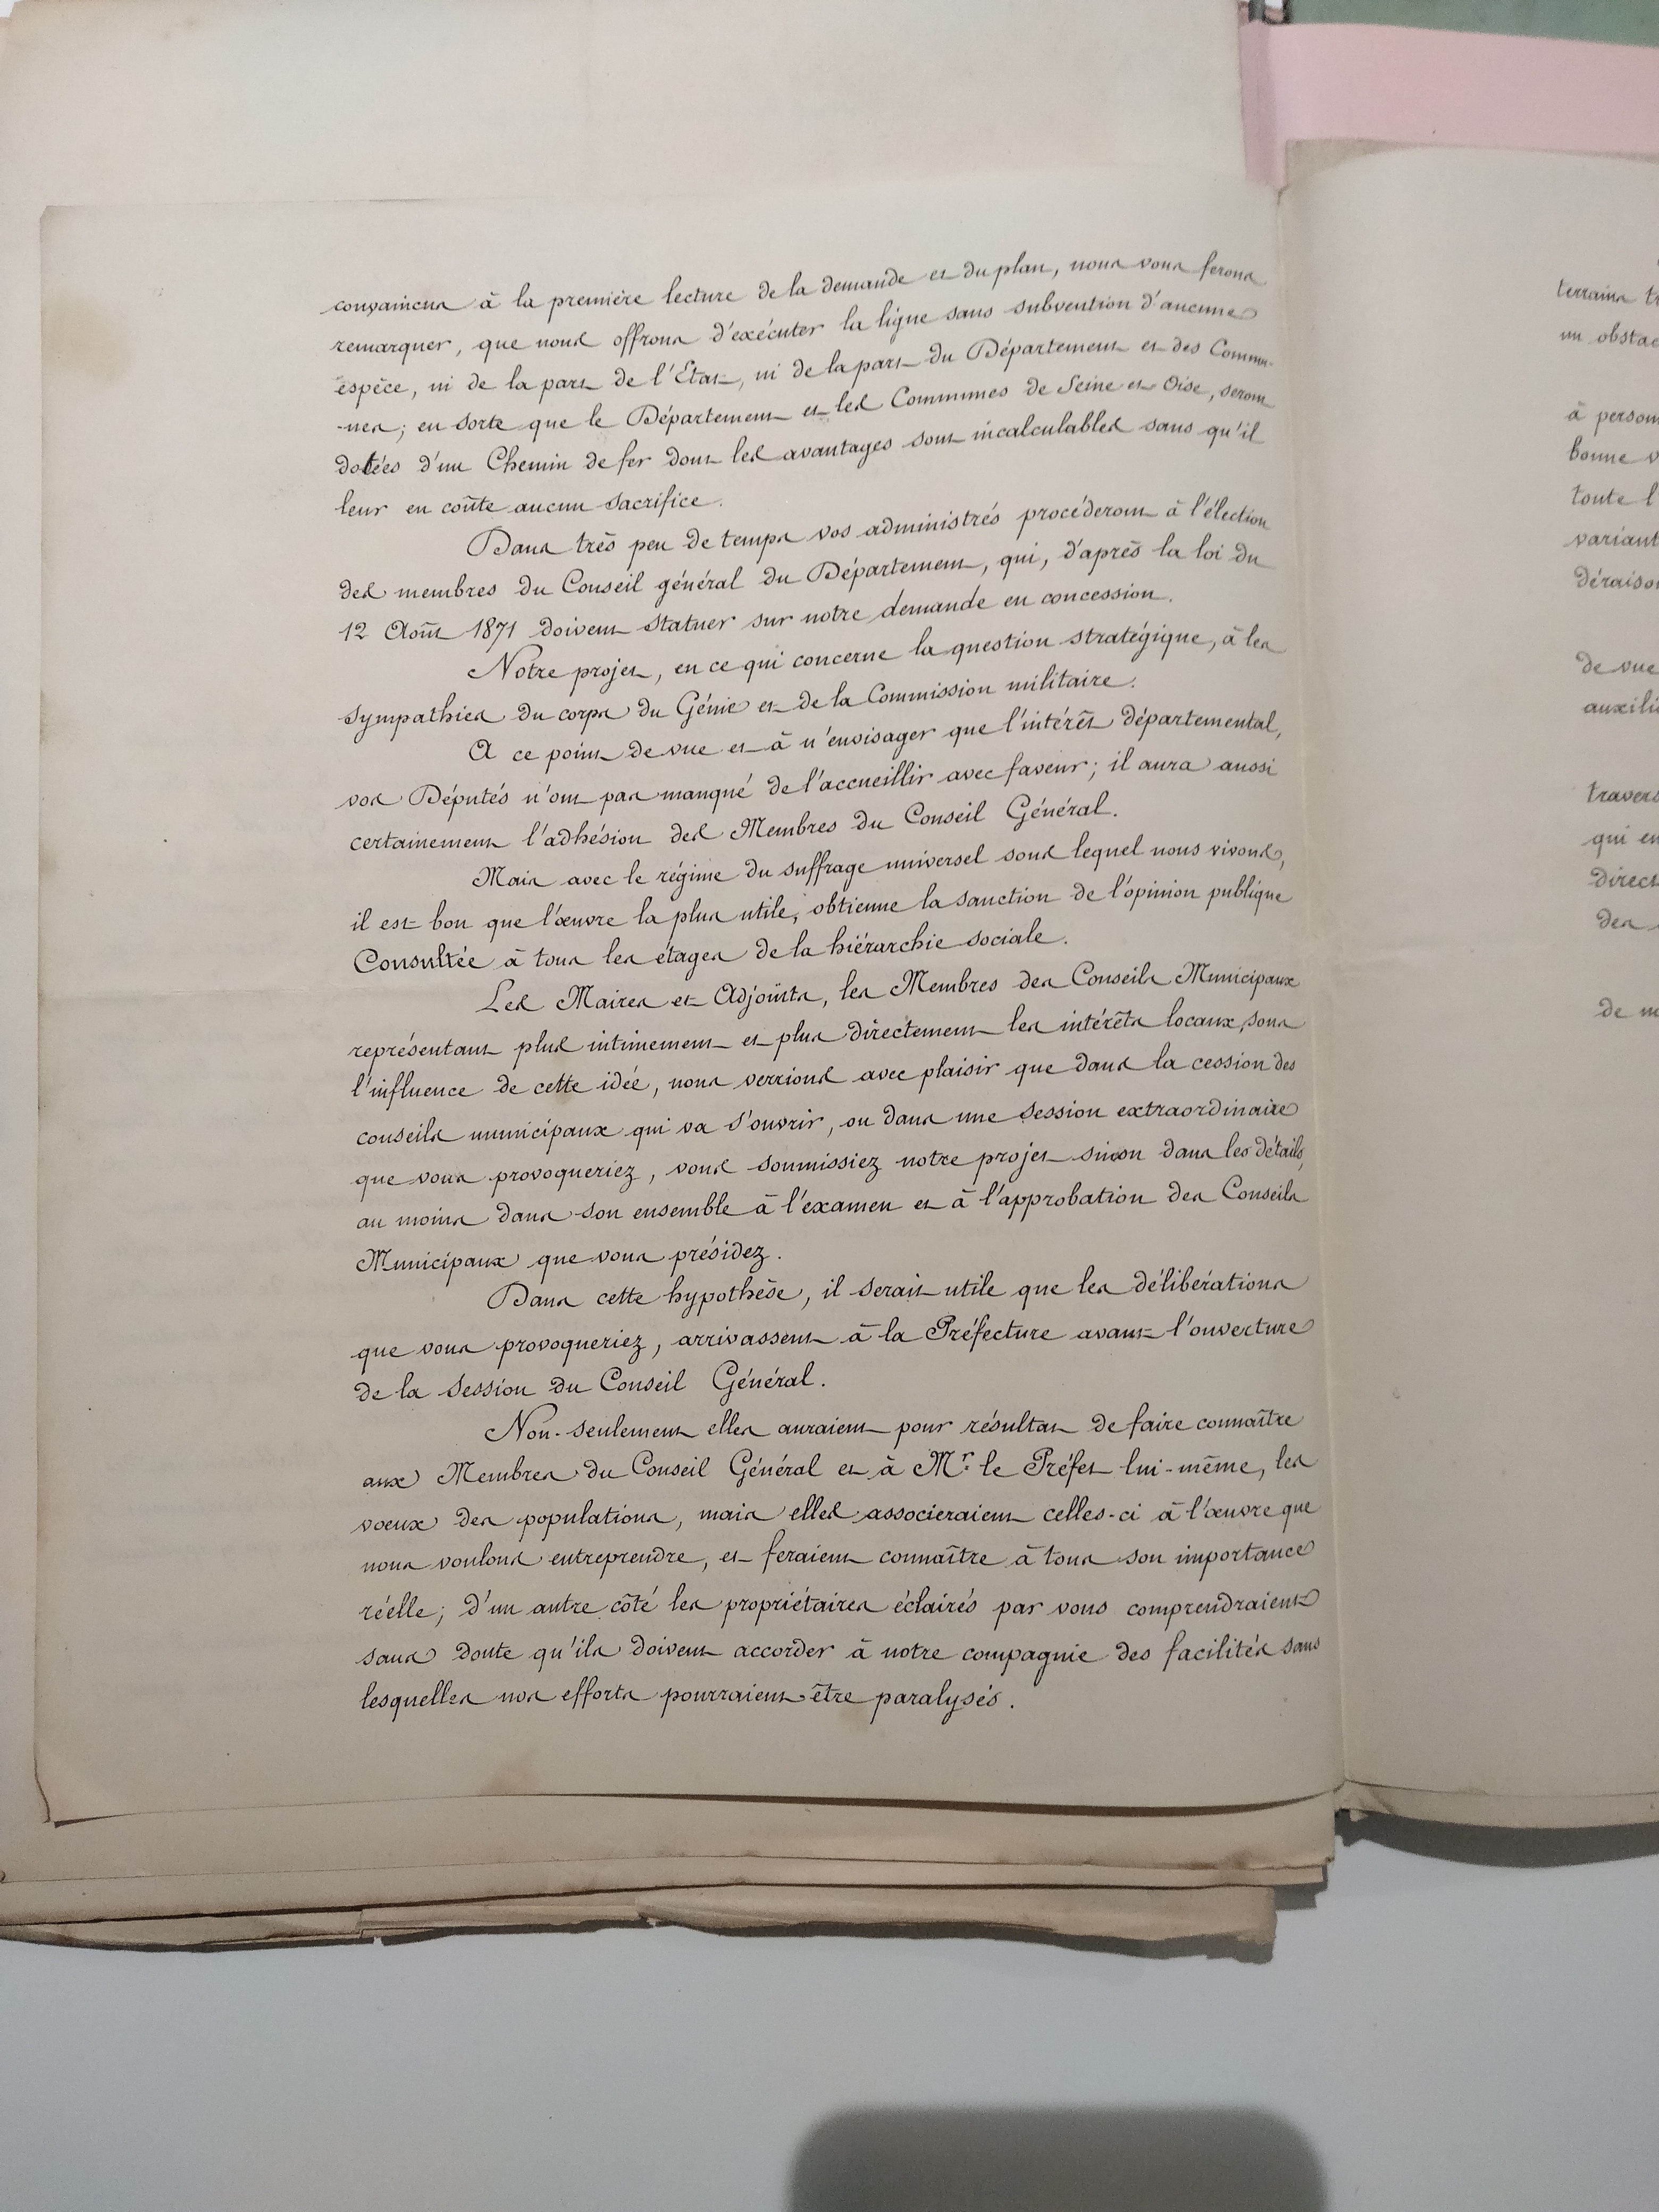 convaincus à la première lecture de la demande et du plan, nous vous ferons
remarquer, que nous offrons d'exécuter la ligne sans subvention d'aucune
espèce, ni de la part de l'Etat, ni de la part du Département et des Commu-
-nes; en sorte que le Département et les Communes de Seine et Oise, seront
dotées d'un Chemin de fer dont les avantages sont incalculables sans qu'il
leur en coûte aucun sacrifice.
Dans très peu de temps vos administrés procéderont à l'élection
des membres du Conseil général du Département, qui, d'après la loi du
12 Août 1871 doivent statuer sur notre demande en concession.
Notre projet, en ce qui concerne la question stratégique, à les
sympathies du corps du Génie et de la Commission militaire.
A ce point de vue et à n'envisager que l'intérêt départemental,
vos Députés n'ont pas manqué de l'accueillir avec faveur; il aura aussi
certainement l'adhésion des Membres du Conseil Général.
Mais avec le régime du suffrage universel sous lequel nous vivons,
il est bon que l'œuvre la plus utile, obtienne la sanction de l'opinion publique
Consultée à tous les étages de la hiérarchie sociale.
Les Maires et Adjoints, les Membres des Conseils Municipaux
représentant plus intimement et plus directement les intérêts locaux, sous
l'influence de cette idée, nous verrions avec plaisir que dans la cession des
conseils municipaux qui va s'ouvrir, ou dans une session extraordinaire
que vous provoqueriez, vous soumissiez notre projet sinon dans les détails,
au moins dans son ensemble à l'examen et à l'approbation des Conseils
Municipaux que vous présidez.
Dans cette hypothèse, il serait utile que les délibérations
que vous provoqueriez, arrivassent à la Préfecture avant l'ouverture
de la session du Conseil Général.
Non-seulement elles auraient pour résultat de faire connaître
aux Membres du Conseil Général et à Mr. le Préfet lui-même, les
vœux des populations, mais elles associeraient celles-ci à l'œuvre que
nous voulons entreprendre, et feraient connaître à tous son importance
réelle; d'un autre côté les propriétaires éclairés par vous comprendraient
sans doute qu'ils doivent accorder à notre compagnie des facilités sans
lesquelles nos efforts pourraient être paralysés.
terrains
à
bonne
toute
de vue
qui
des
de